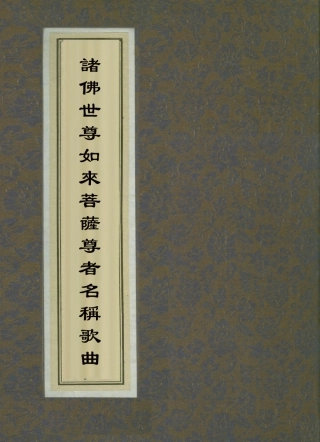 諸佛世尊如來菩薩尊者名稱歌曲